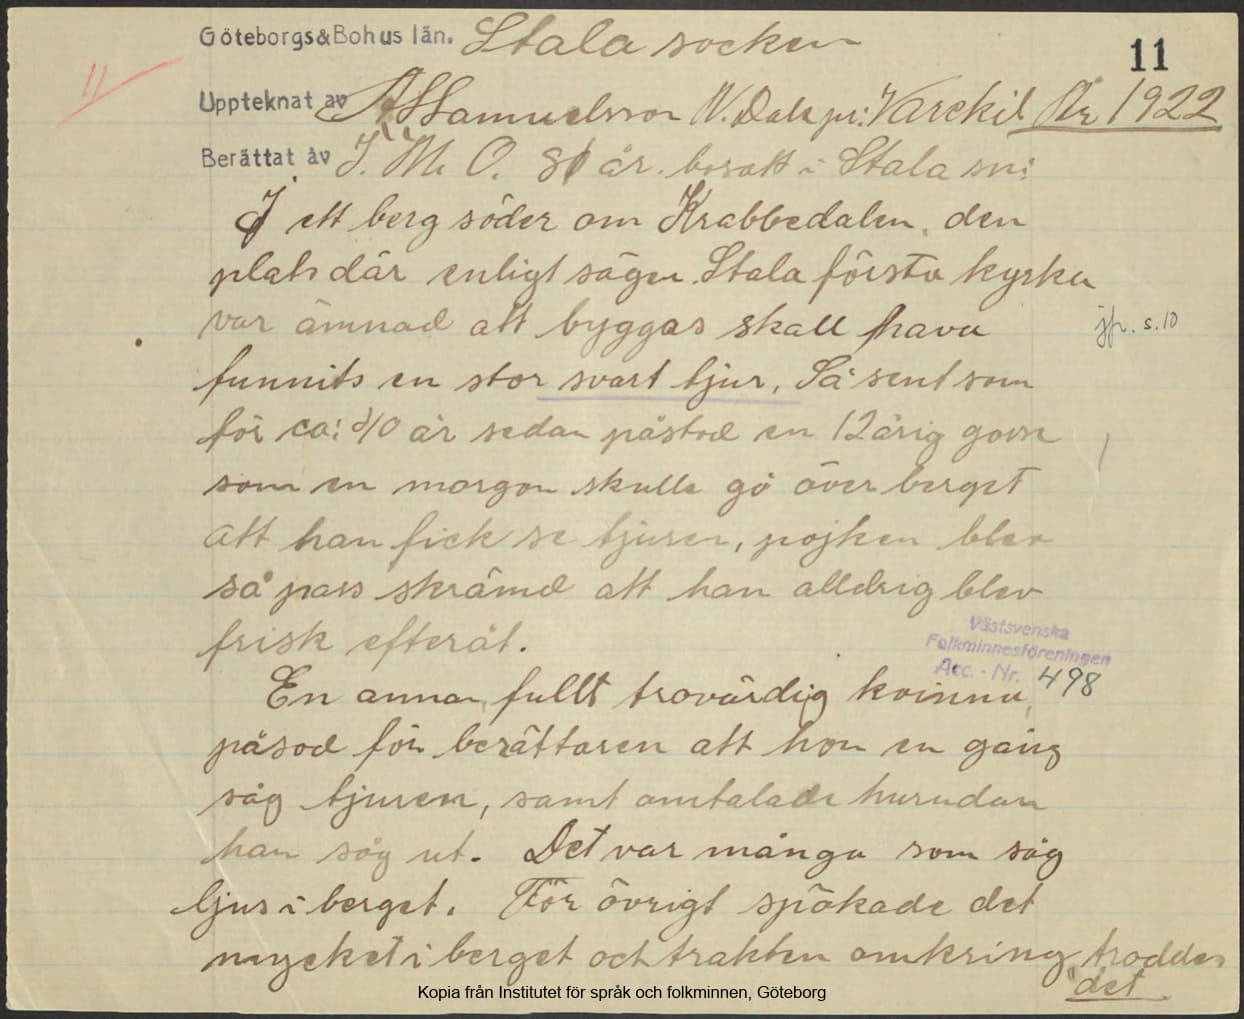 Göteborgs & Bohus län. Stala socken
11
11
Uppteknat av A Samuelsson N. Dale pr: Varekil År 1922
Berättat av J. M. O. 81 år. bosatt i Stala sn:
I ett berg söder om Krabbedalen, den
plats där enligt sägen Stala första kyrka
var ämnad att byggas skall hava
jfr. s. 10
funnits en stor svart tjur. Så sent som
för ca: 40 år sedan påstod en 12 årig gosse
som en morgon skulle gå över berget
att han fick se tjuren, pojken blev
så pass skrämd att han alldrig blev
frisk efteråt.
Västsvenska
Folkminnesföreningen
Acc. - Nr. 498
En annan, fullt trovärdig kvinna,
påsod för berättaren att hon en gång
såg tjuren, samt omtalade hurudan
han såg ut. Det var många som såg
ljus i berget. För övrigt spökade det
mycket i berget och trakten omkring, troddes
det
Kopia från Institutet för språk och folkminnen, Göteborg